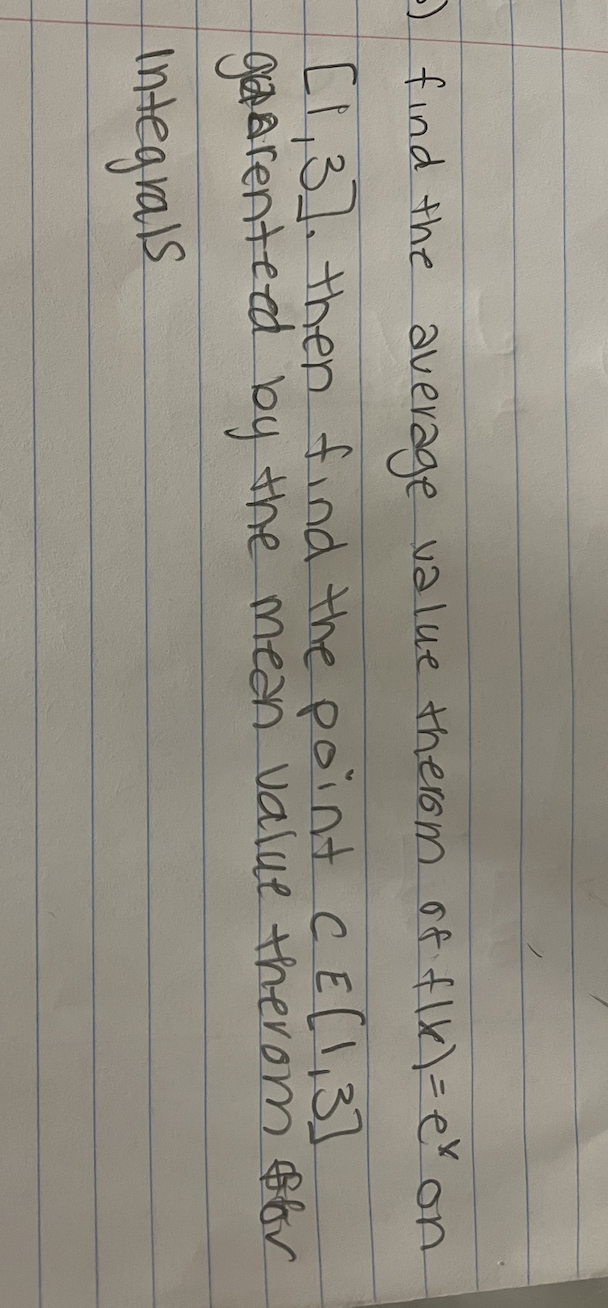 ) find the average value therom of f(x) = e^x on
[1,3]. then find the point C E [1,3]
garented by the mean value therom for
integrals